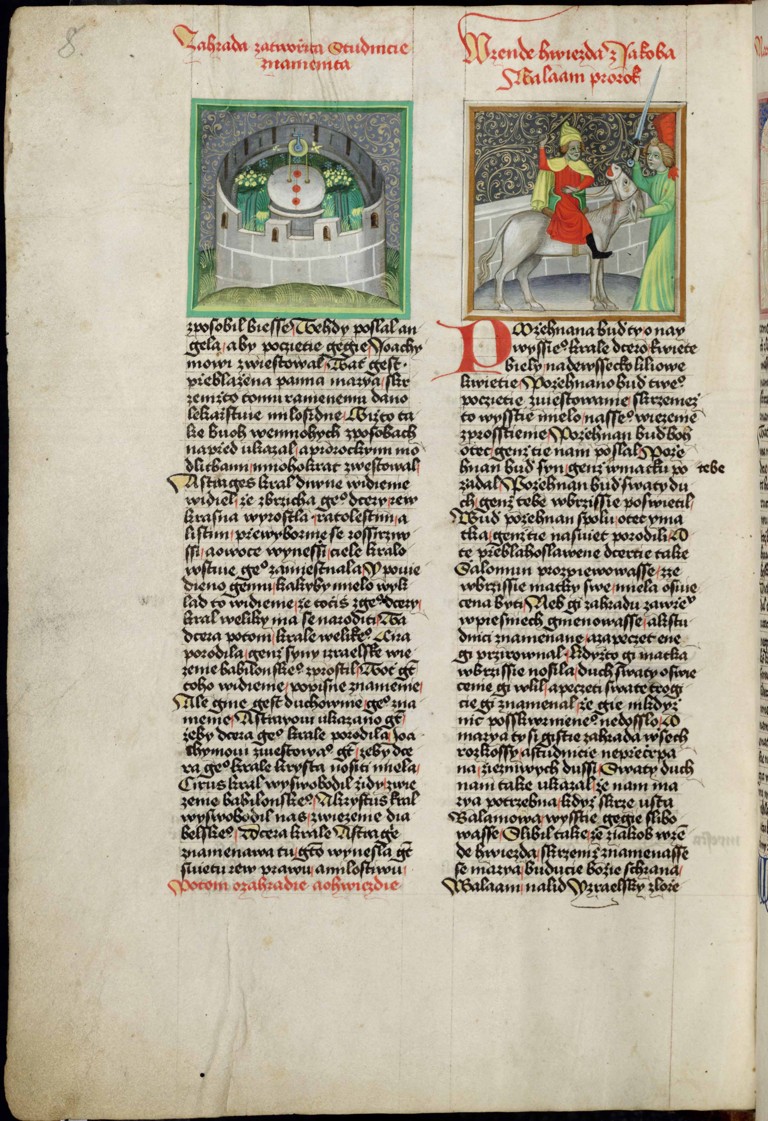 8.
Zahrada zatworzena Studnicie
znamenita
zposobil biesse Tehdy poslal an
gela aby poczetie gegie Joachy
mowi zwiestowal Tat gest
przeblazena panna marya skr
zemzto tomu ramenemu dano
lekarzstwie milosrdne Nizto ta
ke buoh wemnohych zposobach
naprzed ukazal aprorockymi mo
dlitbami mnohokrat zwestowal
Astiages kral diwne widienie
widiel ze zbrzicha ge° dcery rew
krasna wyrostla ratolestmi a
listim przewyborne se rossirziw
ssi aowoce wynessi ciele kralo
wstwie ge° zamiestnala Y powie
dieno gemu kakyby mielo wyk
lad to widienie ze totis zge° dcery
kral weliky ma se naroditi Ta
dcera potom krale welike° Cira
porodila genz syny izraelske wie
zenie babilonske° zprostil Tot gt
toho widienie popisne znamenie
Ale gine gest duchownie ge° zna
menie Astiagowi ukazano gt
zeby dcera ge° krale porodila Joa
chymowi zwestowa° gt zeby dce
ra ge° krale krysta nositi miela
Cirus kral wyswobodil zidy zwie
zenie babilonske° Akrystus kral
wyswobodil nas zwiezenie dia
belske° Dcera krale Astiage
znamenawa tu gto wynesla gt
swietu rew prawu amilostiwu
Potom ozahradie aohwiezdie
Wzende hwiezda z Jakoba
Balaam prorok
Pozehnana bud ty o nay
wyssie° krale dcero kwiete
biely nadewssecko liliowe
kwietie Pozehnano bud twe°
poczetie zwiestowanie skrzemez
to wysstie mielo nasse° wiezenie
zprosstienie Pozehnan bud boh
otec genz tie nam poslal Poze
hnan bud syn genz wmatku po tebe
zadal Pozehnan bud swaty du
ch genz tebe wbrzissie poswietil
Bud pozehnan spolu otec yma
tka genz tie naswiet porodili O
te przeblahoslawene dcertie take
Salomun prozpiewowasse ze
wbrzissie matky swe miela oswie
cena byti Neb gi zahradu zawrze°
wpiesniech gmenowasse akstu
dnici znamenane azapeczet ene
gi przirownal Kdyzto gi matka
wbrzissie nosila duch swaty oswie
cenie gi wlil apeczeti swate trogi
cie gi znamenal ze gie nikdyz
nic posskwrniene° nedosslo O
marya ty si gistie zahrada wsech
rozkossy astudnicie neprzeczrpa
na ziezniwych dussi Swaty duch
nam take ukazal ze nam ma
rya potrzebna kdyz skrze usta
Balamowa wysstie gegie slibo
wasse Slibil take ze ziakob wze
de hwiezda skrzemz znamenasse
se marya buducie bozie schrana
Balaam nalid Yzraelsky zlorze